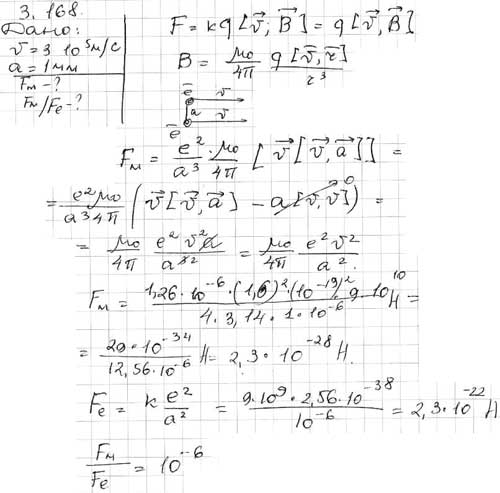 3.168.
Дано:
v = 3 10⁵ м/с
a = 1 мм
Fм – ?
Fм/Fe – ?
F = kq [v⃗; B⃗] = q [v⃗, B⃗]
B = μ₀/4π q [v̄, r̄]/r³
ē v
a
ē v
Fм = e²/a³ · μ₀/4π [v⃗ [v⃗, a⃗]] =
= e²μ₀/a³4π (v⃗ [v⃗, a⃗] – a [v, v] 0) =
= μ₀/4π e² v² a/a³ = μ₀/4π e² v²/a².
Fм = 1,26 · 10⁻⁶ · (1,6)² · (10⁻¹⁹)² · 9 · 10¹⁰/4 · 3,14 · 1 · 10⁻⁶ Н =
= 29 · 10⁻³⁴/12,56 · 10⁻⁶ Н = 2,3 · 10⁻²⁸ Н.
Fe = k e²/a² = 9 · 10⁹ · 2,56 · 10⁻³⁸/10⁻⁶ = 2,3 · 10⁻²² Н
Fм/Fe = 10⁻⁶